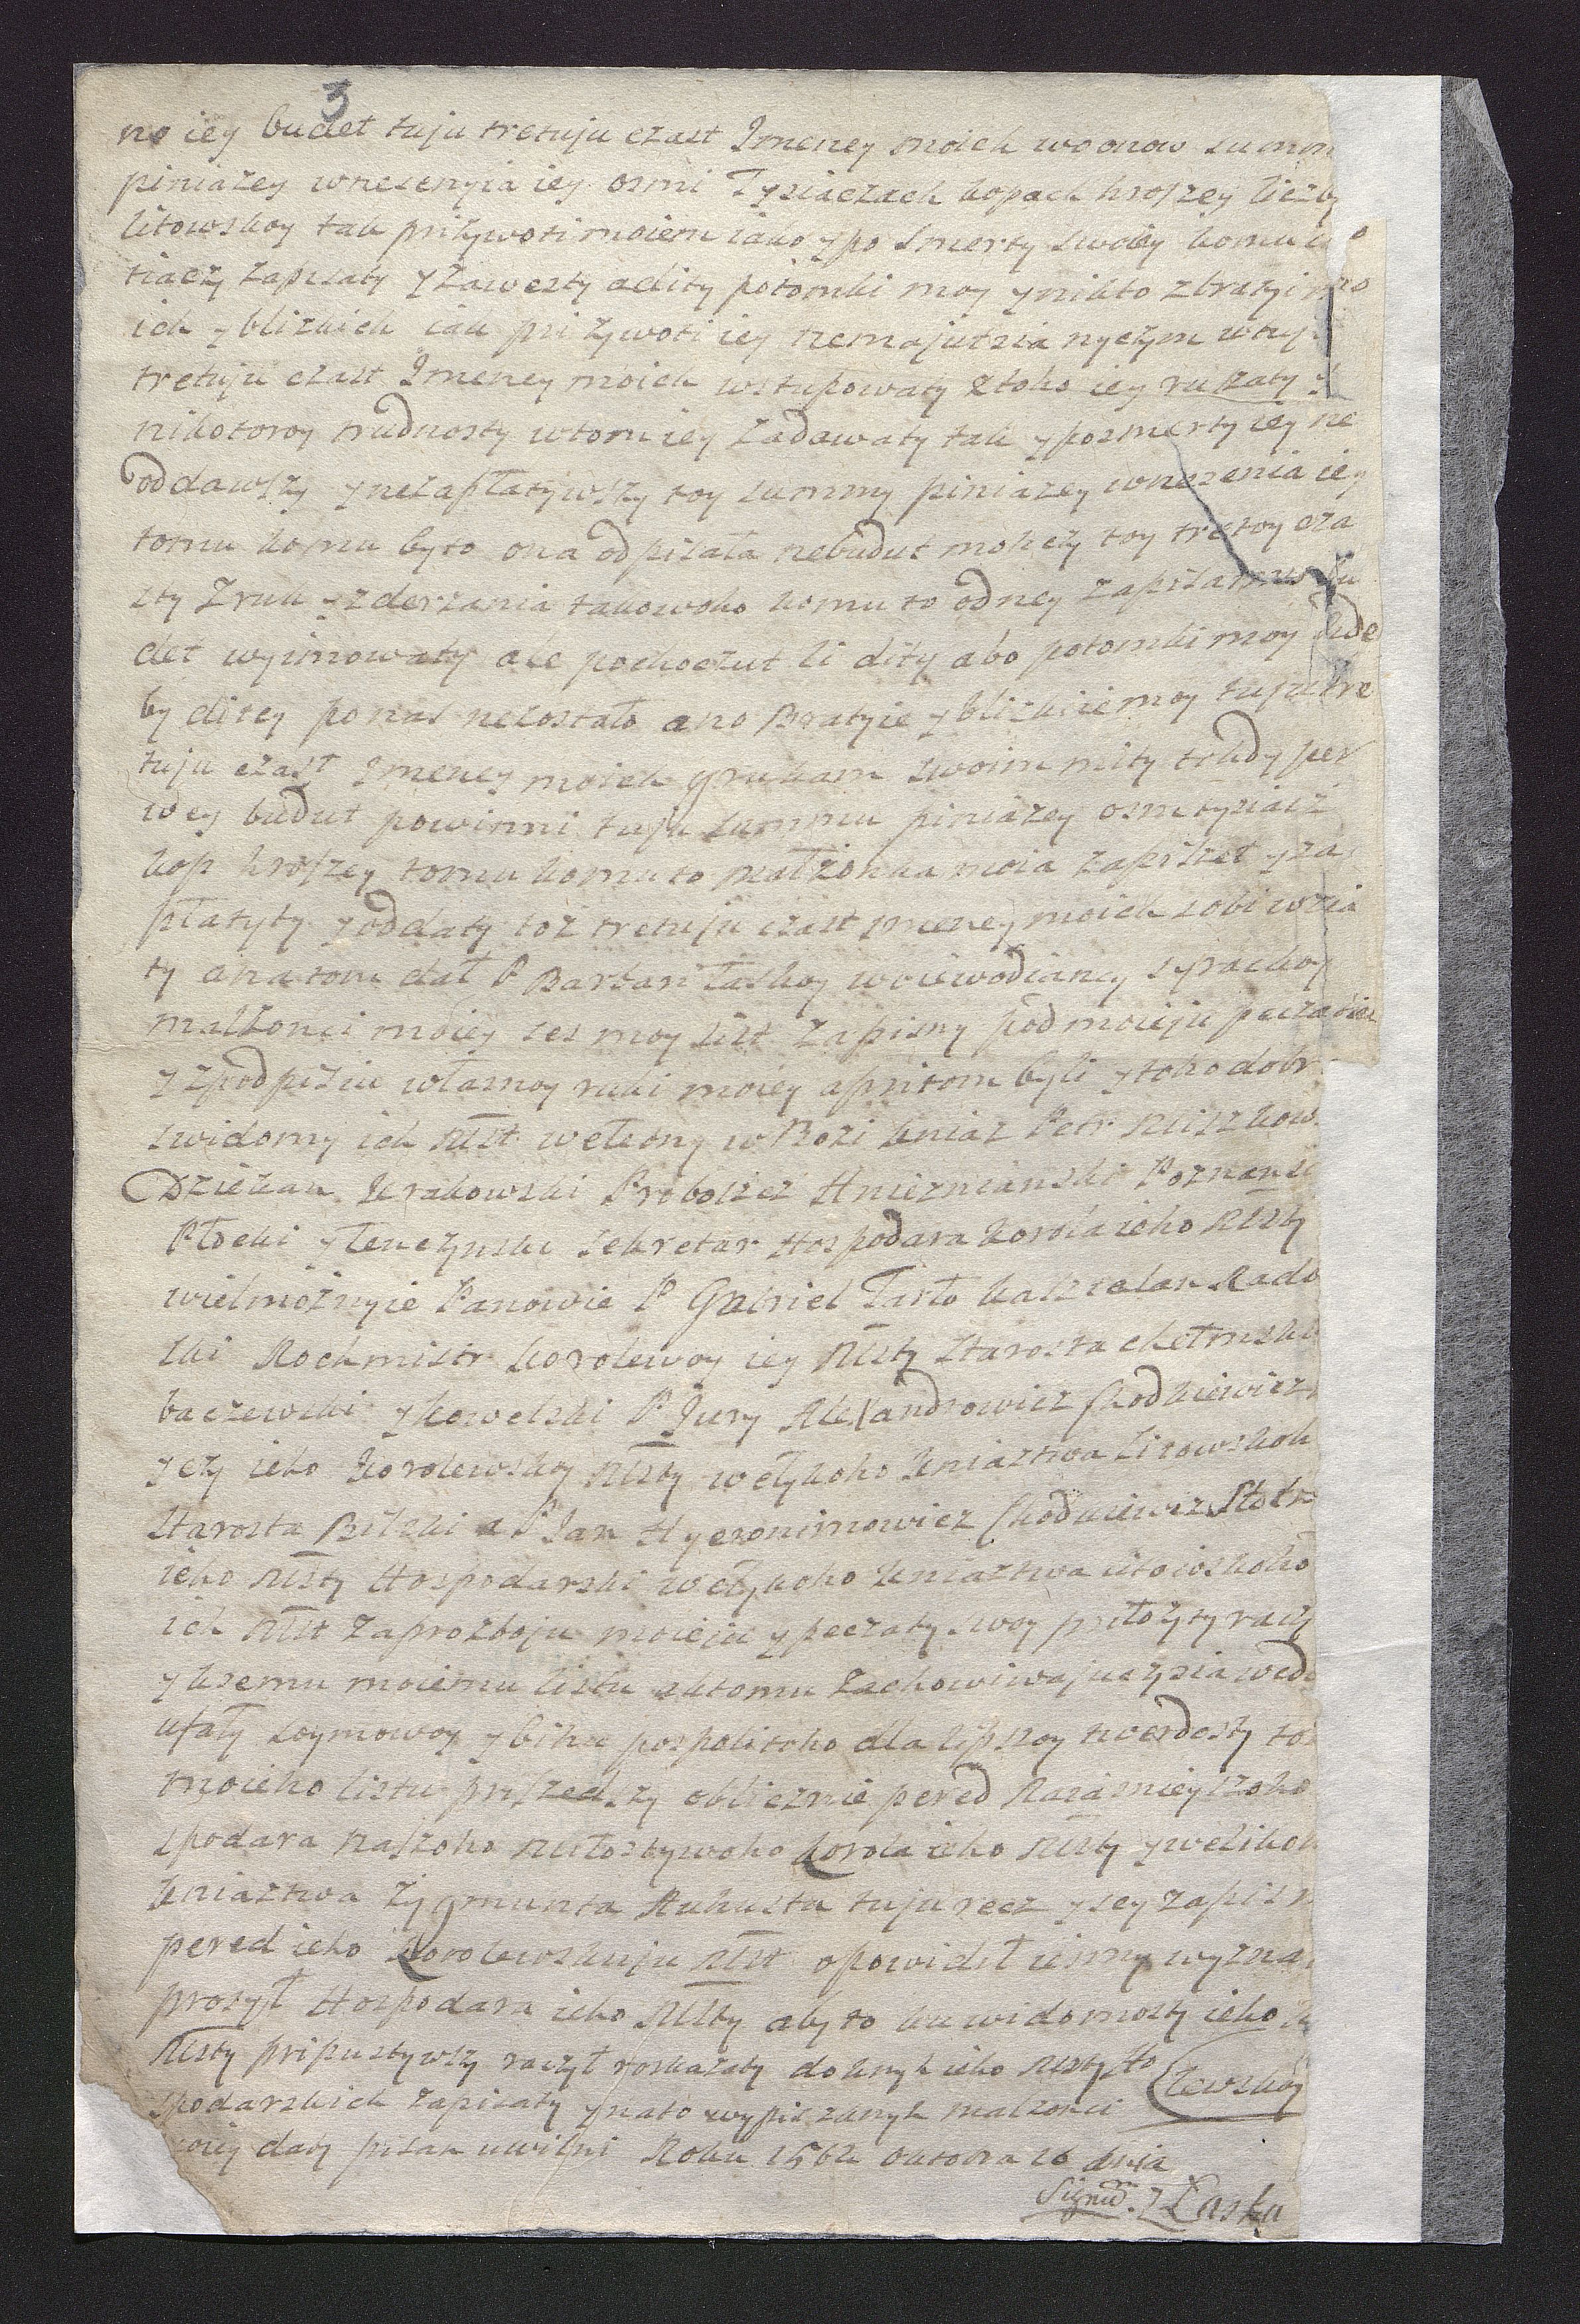 3
no iey budet tuju tretuju czast Imeney moich wo onow summ
piniazey wnesenyia iey osmi Tysiaczach kopach hroszey liczby
litowskoy tak pri żywoti moiem iako y po smerty swoiey komu
tiaczy zapisaty y zawesty a dity potomki moy y nikto z bratyi mo
ich y blizkich iak pri żywoti iey nemajut sia nyczym w tuju
tretuju czast Imeney moich wstupowaty z toho iey ruszaty y
nikotoroy trudnosty w tom iey zadawaty tak y po smerty iey ne
oddawszy y nezapłatywszy toy summy piniazey wnesenia iey
tomu komu by to ona odpisała nebudut mohczy toy tretoy cza
sty z ruk y z derzania takowoho komu to od ney zapisano bu
det wyimowaty ale pochoczut li dity abo potomki moy hde
by ditey po nas nezostało a no Bratyie y blizkiie moy tuju tre
tuju czast Imeney moich k rukam swoim mity tohdy per
wey budut powinni tuju summu piniazey osm tysiacz
kop hroszey tomu komu to małżonka moia zapiszet y za
płatyty y oddaty toż tretuju czast Imeney moich sobi wzia
ty a na tom dał P Barbari Łaskoy woiewodiancy syradzkoy
małżonci moiey ses moy list zapisny pod moieju peczatiu
y z podpisiu własnoy ruki moiey a pri tom byli y toho dobr
swidomy ich Mst welebny w Bozi kniaz Petr Miszkow
Dziekan Krakowski Proboszcz Hnieznianski Poznansk
Płocki y Łenczynski Sekretar Hospodara Korola ieho Msty
wielmożnyie Panowie P Gabriel Tarło kasztelan Rado
ski Rochmistr korolewoy iey Msty Starosta chełmski
baczewski y kowelski P Jury Alexandrowicz Chodkiewicz
yczy ieho Korolewskoy Msty wełykoho Kniaztwa Litowskoh
Starosta Bilski a P Jan Hyeronimowicz Chodkiewicz Stoln
ieho Msty Hospodarski wełykoho Kniaztwa Litowskoho
ich Mst za prozboju moieju y peczaty swoy priłożyty raczy
y ksemu moiemu listu a ktomu zachowiwajuczysia wedł
ufały soymowoy y bihu pospolitoho dla lipszoy twerdosty to
moieho listu priszedszy oblicznie pered Naiasnieyszoho
spodara naszoho Miłostywoho Korola ieho Msty y welikoh
kniaztwa Zygmunta Auhusta tuju recz y sey zapis m
pered ieho Korolewskuju Mst opowidił iesmy wyzna
prosył Hospodara ieho Msty aby to ku widomosty ieho
Msty pripustywszy raczył roskazaty do knyh ieho Msty Ho (lewskoy
spodarskich zapisaty y na to wypis z knyh małżonci
moiey daty pisan u wilni Roku 1562 oktobra 26 dnia
Signum Z Łaska